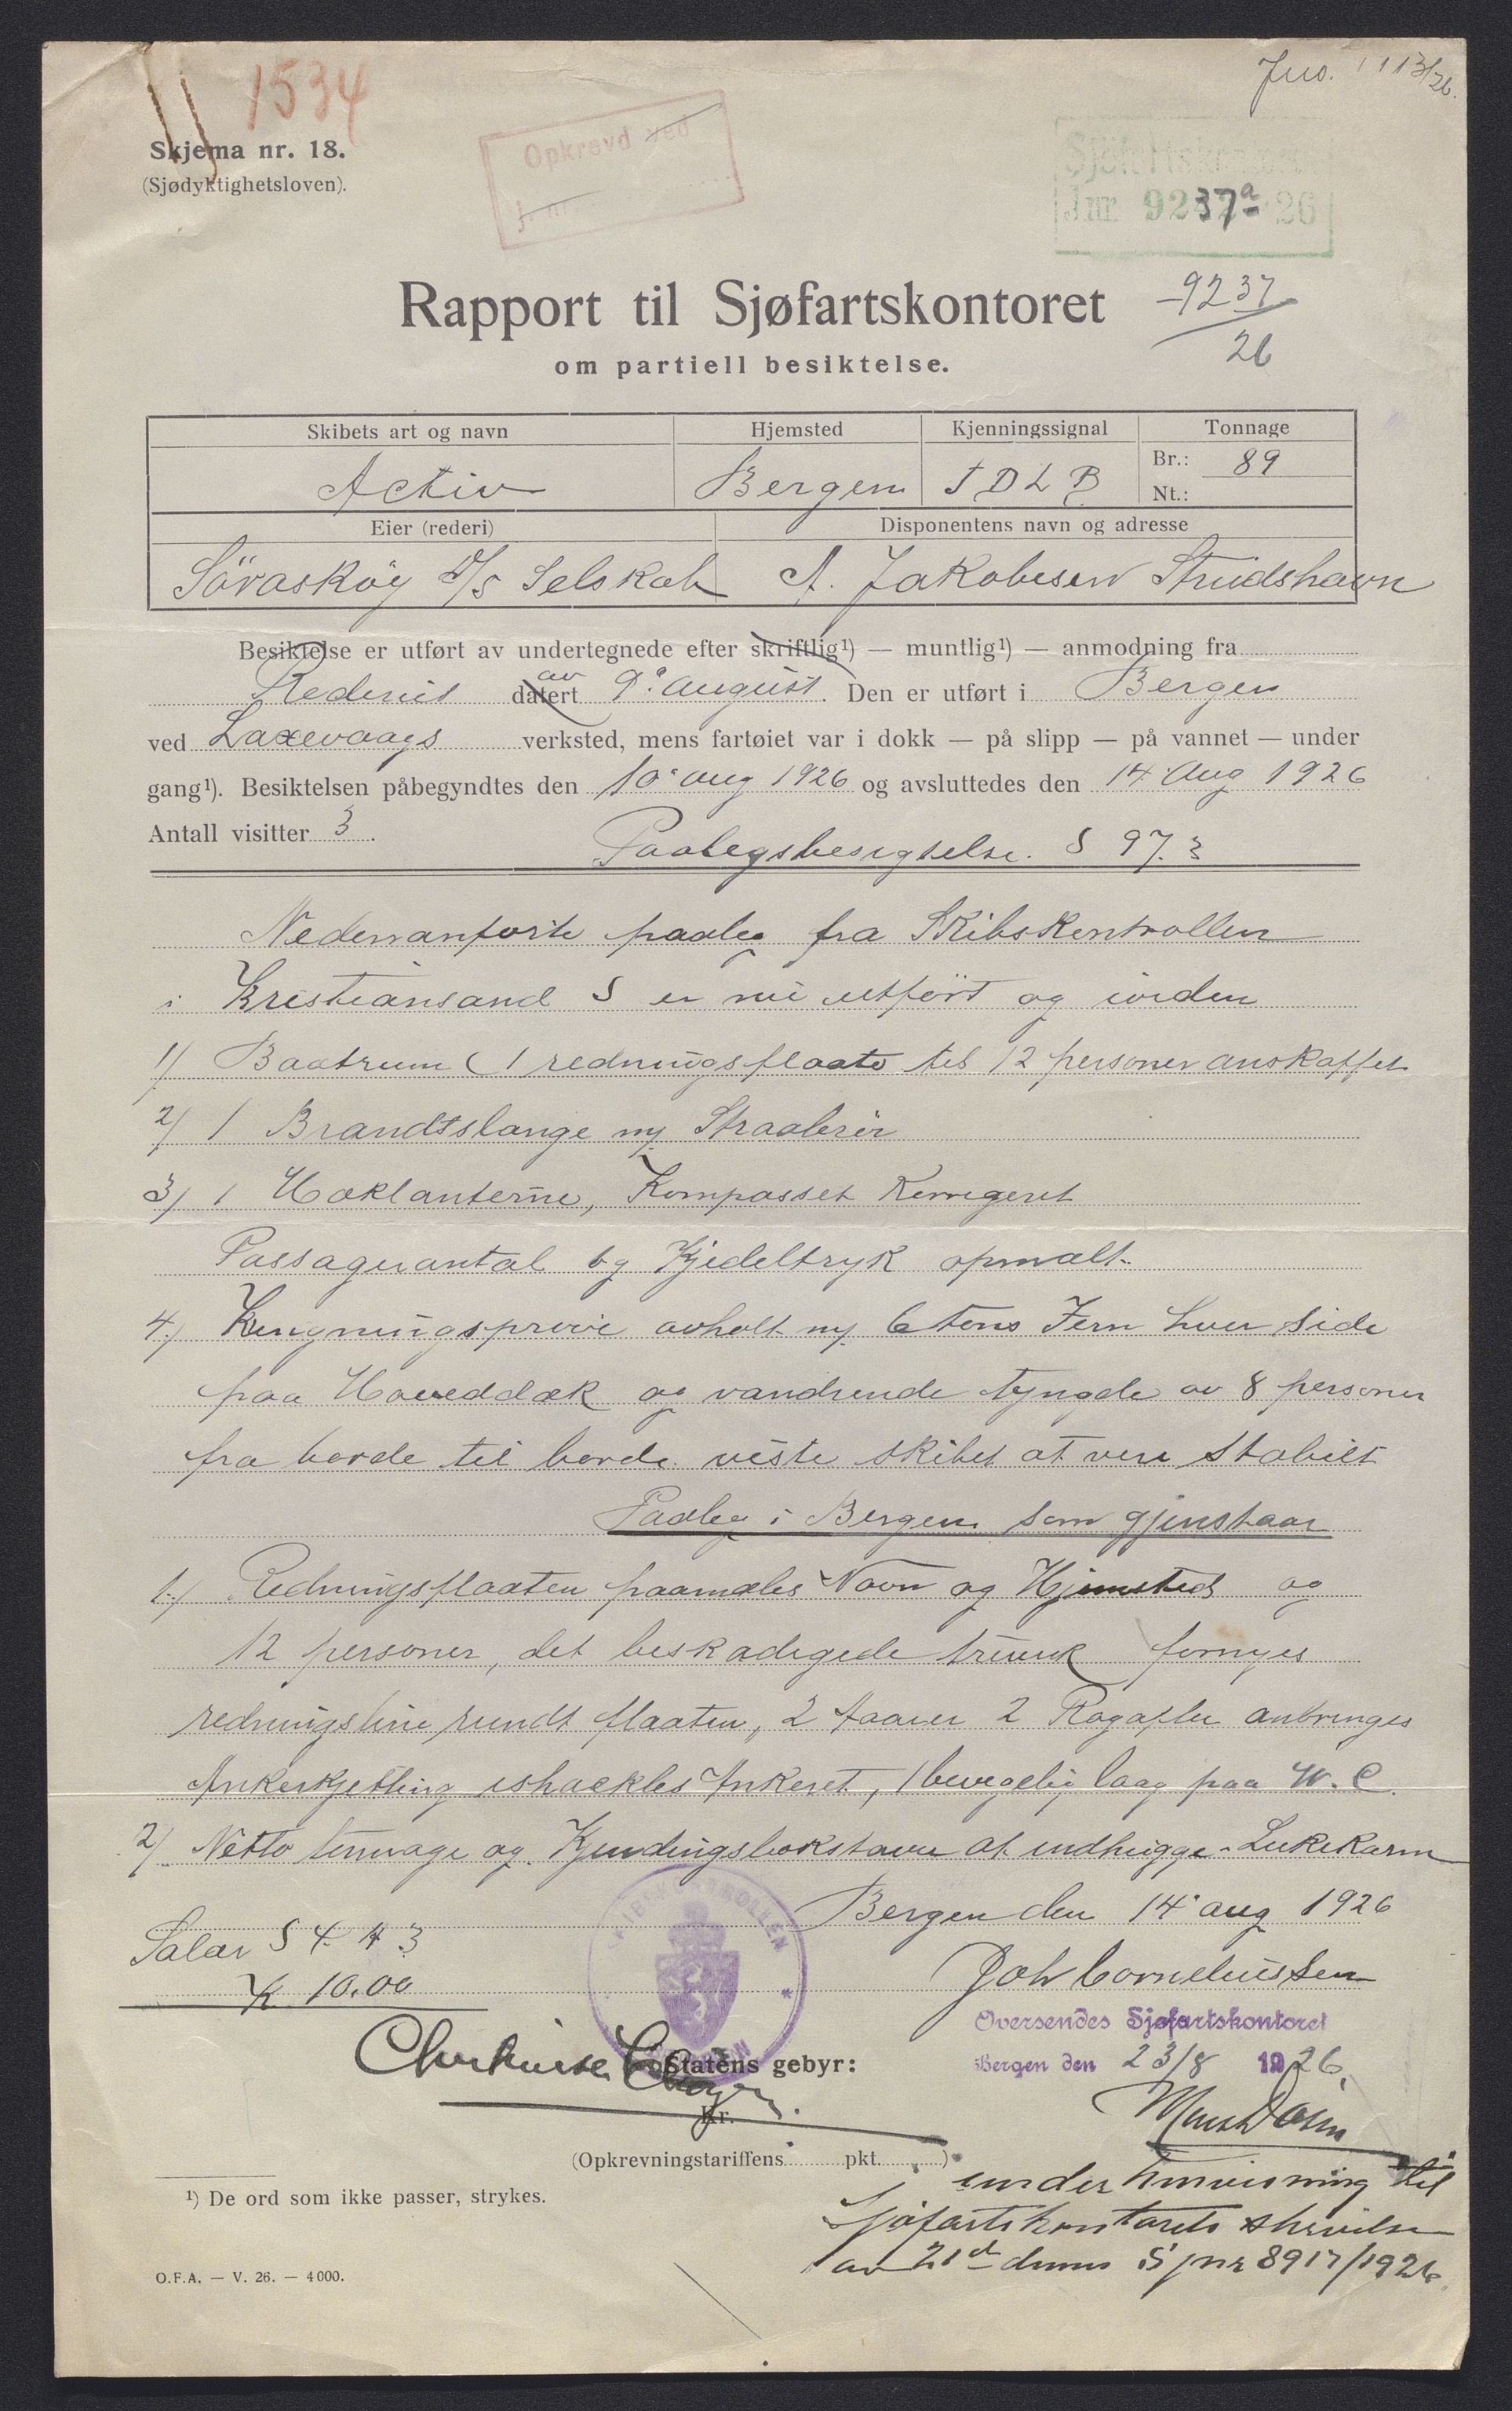 1534
Jno. 1113/26.
Skjema nr. 18.
(Sjødyktighetsloven).
Opkrevd ved
J. nr.
Sjøfartskontoret
Jnr. 9237a 26
9237
26
Rapport til Sjøfartskontoret
om partiell besiktelse.
Skibets art og navn Hjemsted Kjenningssignal Tonnage
Activ Bergen T D L B Br.: 89
Nt.:
Eier (rederi) Disponentens navn og adresse
Sövasköy D/S Selskab A. Jakobsen Strudshavn
Besiktelse er utført av undertegnede efter skriftlig¹) — muntlig¹) — anmodning fra
Rederiet datert av 9° august. Den er utført i Bergen
ved Laxevaags verksted, mens fartøiet var i dokk — på slipp — på vannet — under
gang¹). Besiktelsen påbegyndtes den 10° aug 1926 og avsluttedes den 14° Aug 1926
Antall visitter 3.
Paalegsbesigtelse. § 97.3
Nedenanförte paaleg fra Skibskontrollen
i Kristiansand S er nu utfört og iorden
1) Baatrum (1 redningsflaate til 12 personer anskaffet
2) 1 Brandtslange m/ Straalerör
3) 1 Haklanterne, Kompasset Korrigeret
Passagerantal og Kjedeltryk opmalt.
4) Krengningspröve avholt m/ 6 tons Jern hver side
paa Hoveddæk og vandrende tyngde av 8 personer
fra borde til borde viste skibet at vere Stabilt
Paaleg i Bergen som gjenstaar
1.) Redningsflaaten paamales Navn og Hjemsted og
12 personer, det beskadigede fornyes
redningsline rundt flaaten, 2 Aarer 2 Rogafler anbringes
Ankerkjetting ishackles Ankeret, 1 bevegelig laag paa W.C.
2) Netto tonnage og Kjendingsbokstaver at indhugge i Lukekarm
Bergen den 14° aug 1926
Salar § 4. A 3
K 10.00
Joh Corneliussen
SKIBSKONTROLLEN
BERGEN
Oversendes Sjøfartskontoret
Bergen den 23/8 1926.
Statens gebyr:
Kr.
(Opkrevningstariffens pkt. )
under henvisning til
Sjøfartskontorets skrivelse
av 21d dennes S jnr 8917/1926.
¹) De ord som ikke passer, strykes.
O.F.A. — V. 26. — 4000.